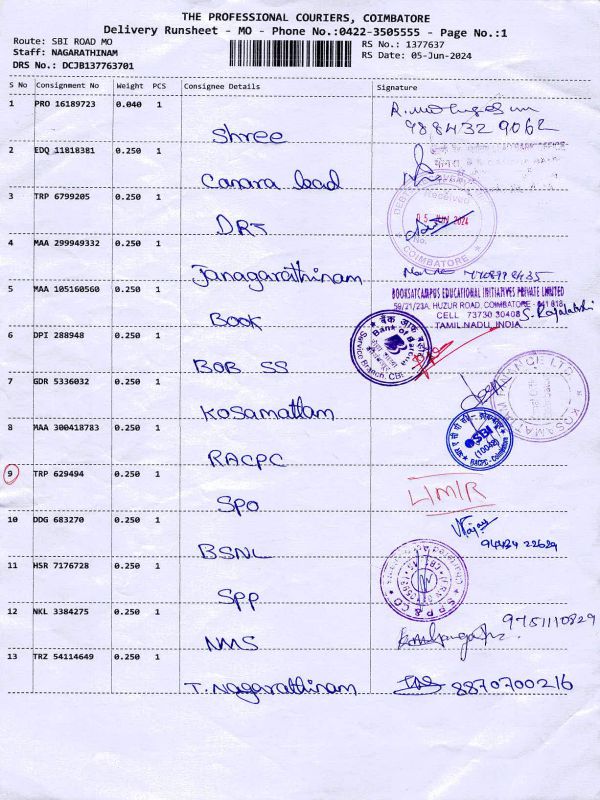 THE PROFESSIONAL COURIERS, COIMBATORE
Delivery Runsheet - MO - Phone No.:0422-3505555 - Page No.:1
Route: SBI ROAD MO
Staff: NAGARATHINAM
DRS No.: DCJB137763701
RS No.: 1377637
RS Date: 05-Jun-2024
S No Consignment No Weight PCS Consignee Details Signature
1 PRO 16189723 0.040 1 Shree
98843 29062
2 EDQ 11818381 0.250 1 Canara lead
3 TRP 6799205 0.250 1 DRT
Received
JUN 2024
COIMBATORE
4 MAA 299949332 0.250 1 Janagarathinam
5 MAA 105160560 0.250 1 Book
BOOKSATCAMPUS EDUCATIONAL INITIATIVES PRIVATE LIMITED
59/21/23A, HUZUR ROAD, COIMBATORE - 641 018
CELL 73730 30408
TAMIL NADU, INDIA
S. Rajalakshi
6 DPI 288948 0.250 1 BOB SS
बैंक ऑफ बड़ौदा
Bank of Baroda
Service Branch, CBE
7 GDR 5336032 0.250 1 Kosamattam
8 MAA 300418783 0.250 1 RACPC
SBI
(10048)
RACPC - Coimbatore
9 TRP 629494 0.250 1 SPO
10 DDG 683270 0.250 1 BSNL
Vijay
94434 22629
11 HSR 7176728 0.250 1 SPP
SPP & CO
12 NKL 3384275 0.250 1 NMS
9751110829
13 TRZ 54114649 0.250 1 T. Nagarathinam
8870700216